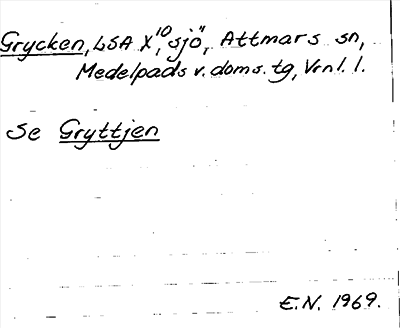 Grycken, LSA X¹⁰, "sjö", Attmars sn,
Medelpads v. doms. tg, Vrnl. l.
Se Gryttjen
E.N. 1969.